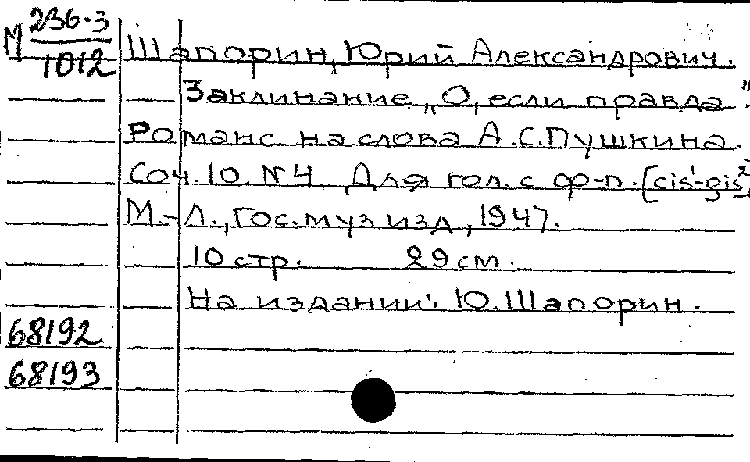 М 236-3
1012
Шапорин, Юрий Александрович.
Заклинание „О, если правда".
Романс на слова А.С.Пушкина.
Соч. 10 №4 Для гол. с ф-п. [cis¹-gis²]
М.-Л., Гос. муз изд, 1947.
10 стр. 29 см.
На издании: Ю. Шапорин.
68192
68193